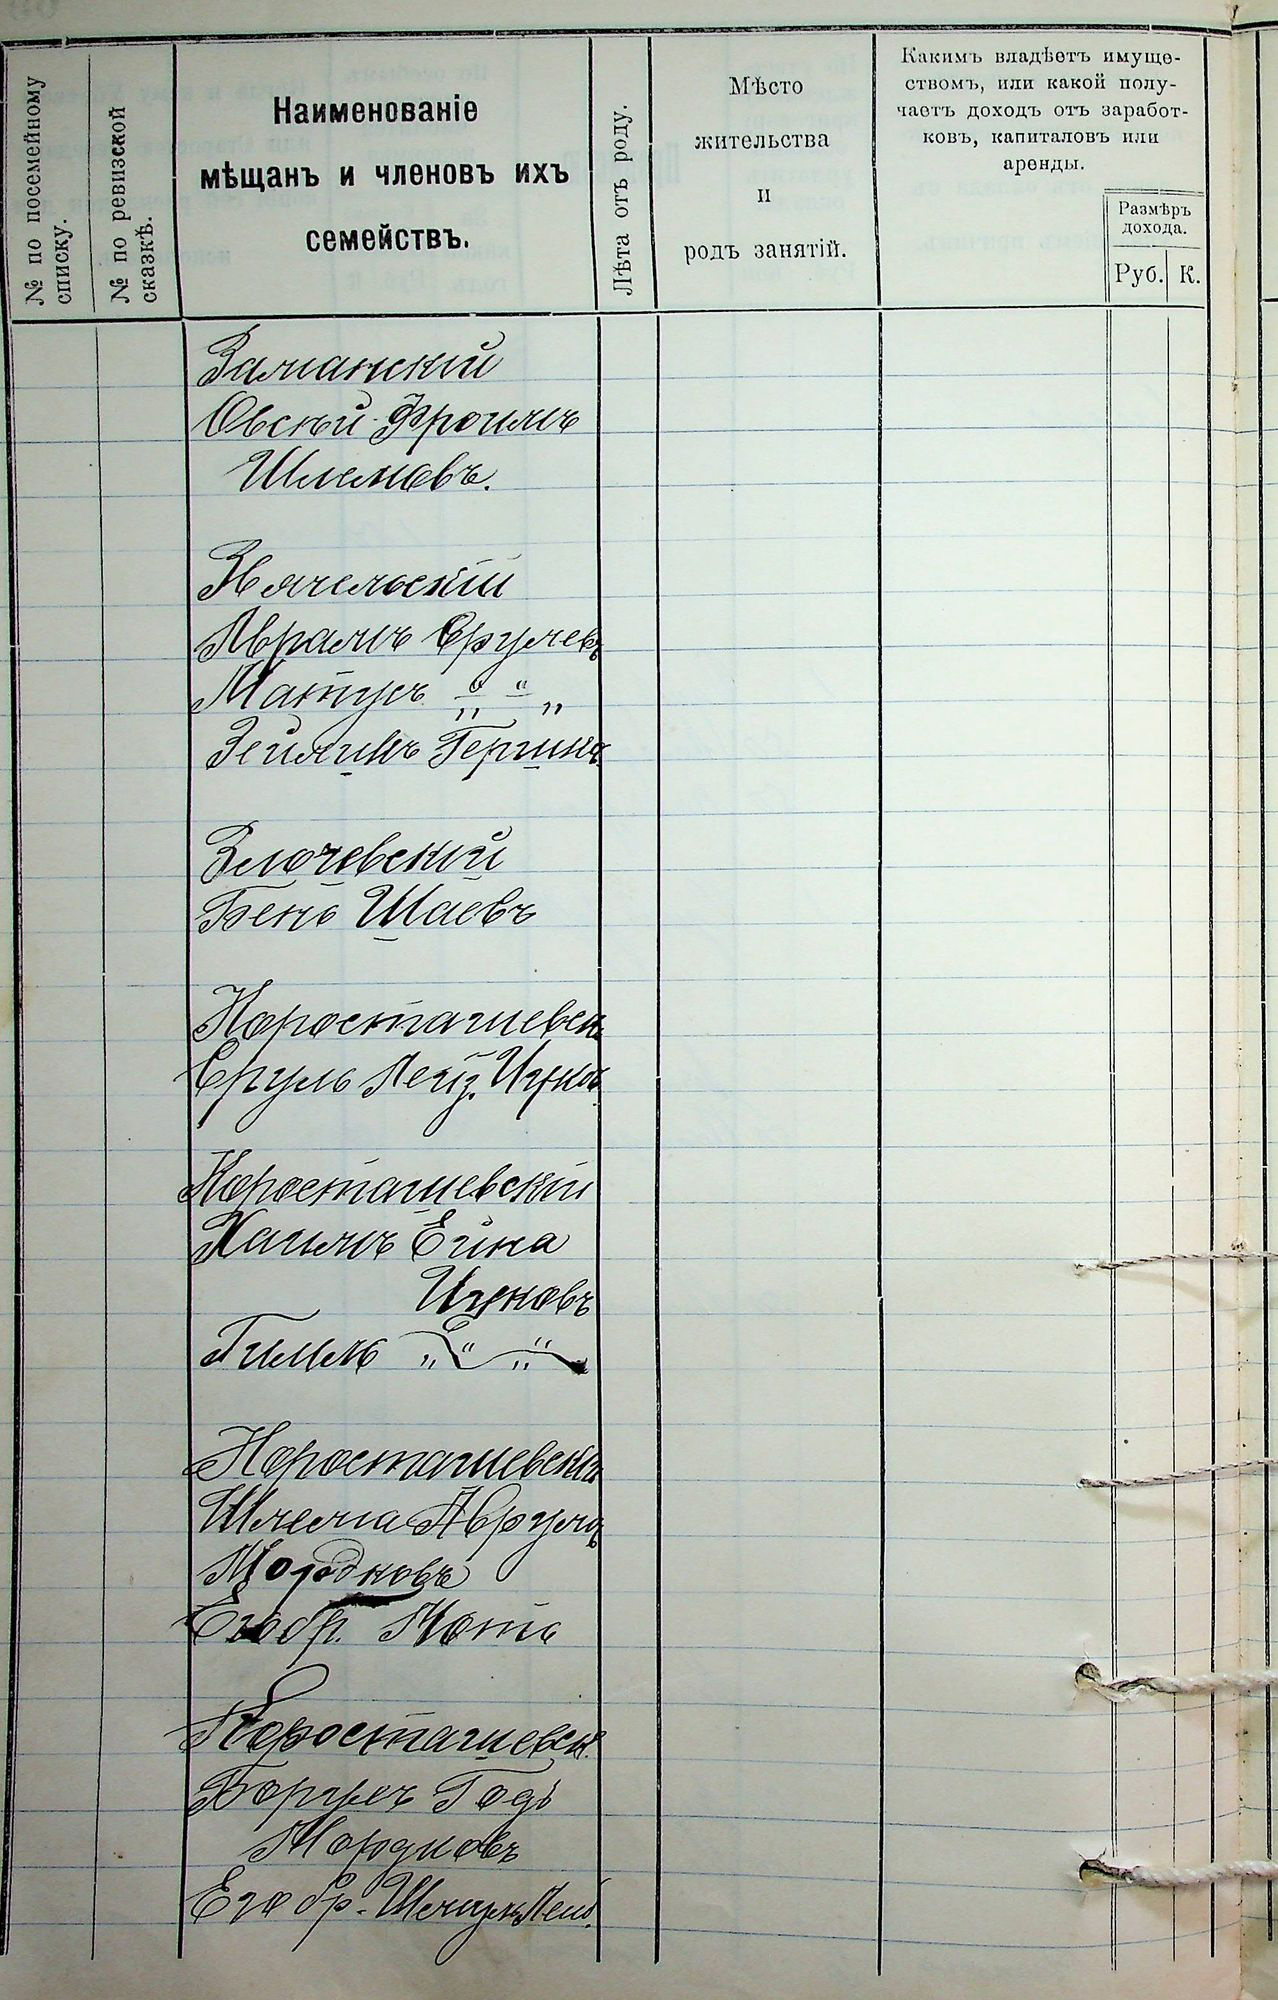 № по посемейному
списку.
№ по ревизской
сказкѣ.
Наименованіе
мѣщанъ и членовъ ихъ
семействъ.
Лѣта отъ роду.
Мѣсто
жительства
и
родъ занятій.
Какимъ владѣетъ имуще-
ствомъ, или какой полу-
чаетъ доходъ отъ заработ-
ковъ, капиталовъ или
аренды.
Размѣръ
дохода.
Руб. К.
Заманскій
Овсѣй-Фроимъ
Шлемовъ.
Звягельскій
Аврамъ Срулевъ
" "
Зейликъ Гершк.
Злочевскій
Бень Шаевъ
Коростышевск.
Сруль Лейз. Ицков.
Коростышевскій
Хаимъ Ейна
Ицковъ
" "
Коростышевскій
Шлема Аврум.
Мордковъ
Его бр. Нота
Коростышевск.
Борухъ Годъ
Мордковъ
Его бр. Шмуль Лейб.